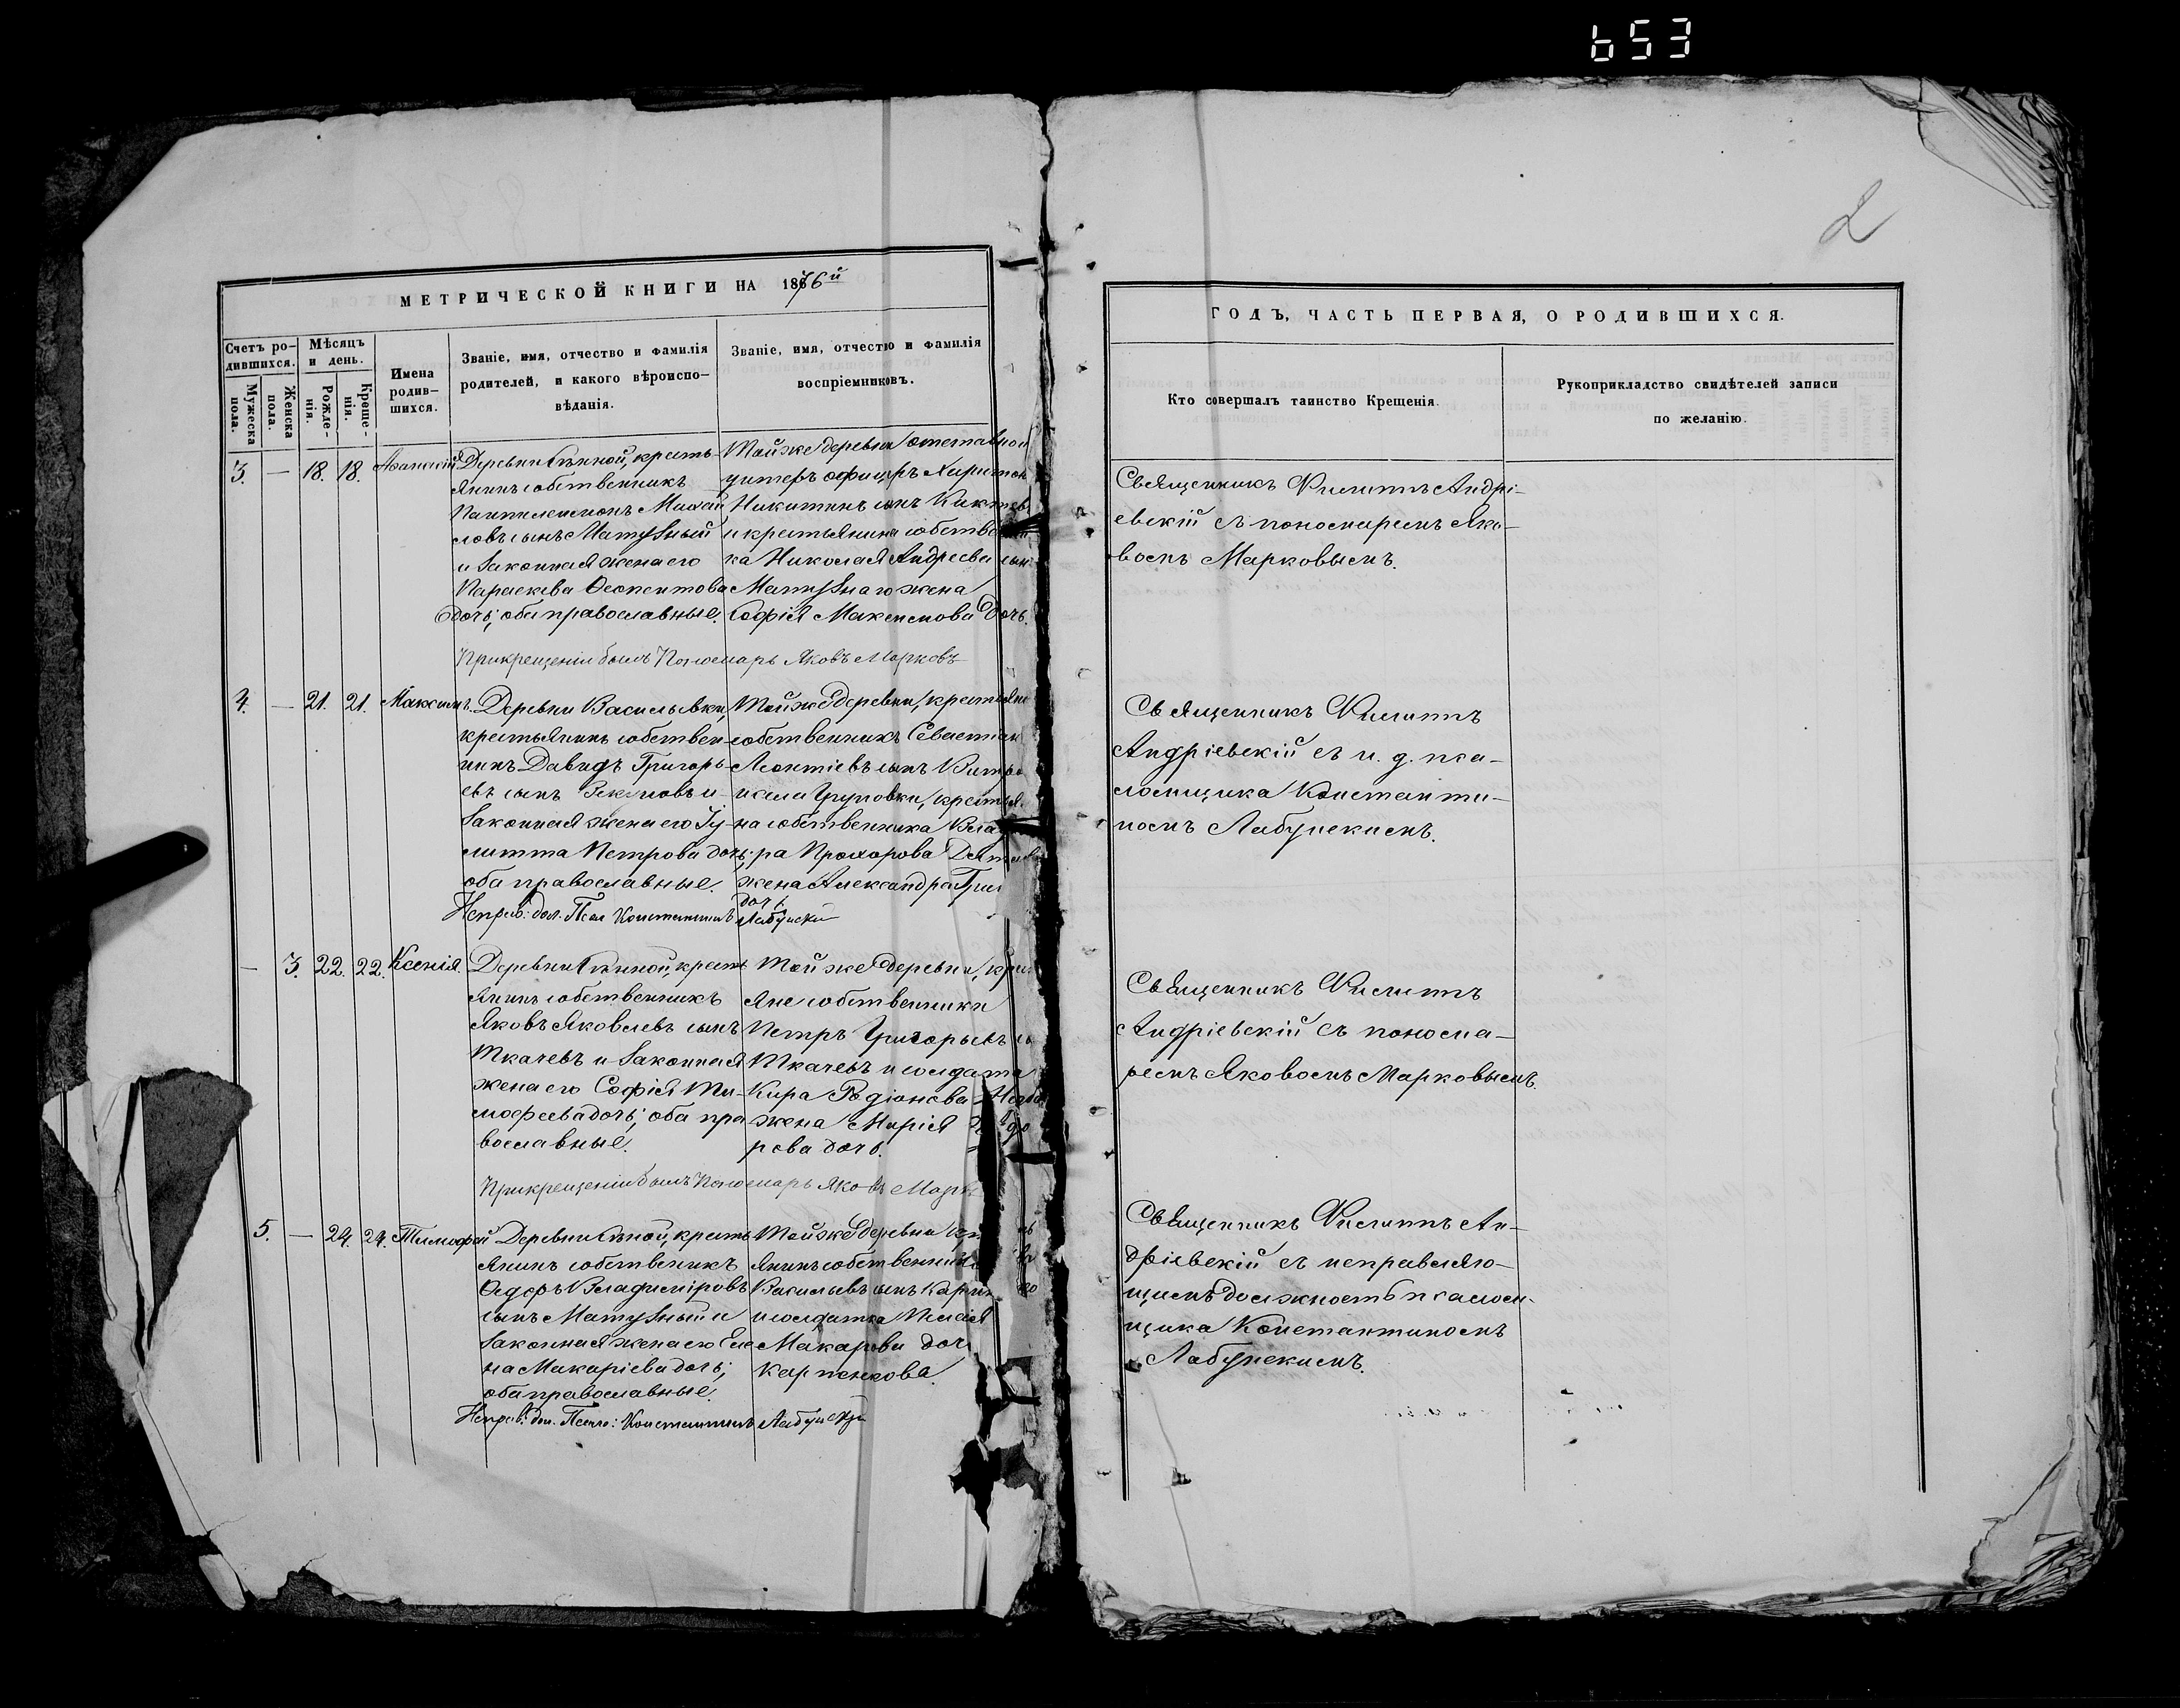 653
2
МЕТРИЧЕСКОЙ КНИГИ НА 1876й
Счетъ ро-
дившихся.
Мужеска пола.
Женска пола.
Мѣсяцъ
и день.
Рожде-
нія.
Креще-
нія.
Имена
родив-
шихся.
Званіе, имя, отчество и фамилія
родителей, и какого вѣроиспо-
вѣданія.
Званіе, имя, отчество и фамилія
воспріемниковъ.
3. — 18. 18. Аѳанасій
Деревни крестья-
янинъ собственникъ
Пантелеимонъ Михай
ловъ сынъ Матузный
и законная жена его
Параскева
дочь; оба православные.
Той же деревни отставной
унтеръ офицеръ Харитон
Никитинъ сынъ
и крестьянина собствен
ка Николая Андреева сын
Матузнаго жена
Софія Максимова дочь.
При крещеніи былъ Пономарь Яковъ Марковъ
4. — 21. 21. Максимъ.
Деревни Васильевки,
крестьянинъ собствен-
никъ Давидъ Григорь-
евъ сынъ и
законная жена его Іу-
литта Петрова дочь;
оба православные.
Той же деревни, крестьяни
собственникъ Севастіан
Леонтіевъ сынъ
и села крестья
на собственника Вла
ра Прохорова
жена Александра Григ
дочь
Исправ: дол. Псал Константинъ Лабунскій
— 3. 22. 22. Ксенія.
Деревни крестья
янинъ собственникъ
Яковъ Яковлевъ сынъ
Ткачевъ и законная
жена его Софія Ти-
мофеева дочь; оба пра
вославные.
Той же деревни, крес
яне собственники
Петръ Григорьевъ сы
Ткачевъ и солдата
Кира Родіонова
жена Марія
рова дочь.
При крещеніи былъ Пономарь Яковъ Марк
5. — 24. 24. Тимофей
Деревни крестья
янинъ собственникъ
Ѳедоръ Владиміровъ
сынъ Матузный и
законная жена его Еле
на Макаріева дочь;
оба православные.
Той же деревни кр
янинъ собственникъ
Васильевъ сынъ Карп
и солдатка
Макарова доч
Карпенкова.
Исправ: дол. Псало: Константинъ Лабунскій
ГОДЪ, ЧАСТЬ ПЕРВАЯ, О РОДИВШИХСЯ.
Кто совершалъ таинство Крещенія.
Рукоприкладство свидѣтелей записи
по желанію.
Священникъ Филиппъ Андрі-
евскій съ пономаремъ Яко-
вомъ Марковымъ.
Священникъ Филиппъ
Андріевскій съ и. д. пса-
ломщика Константи-
номъ Лабунскимъ.
Священникъ Филиппъ
Андріевскій съ понома-
ремъ Яковомъ Марковымъ.
Священникъ Филиппъ Ан-
дріевскій съ исправляю-
щимъ должность псалом-
щика Константиномъ
Лабунскимъ.